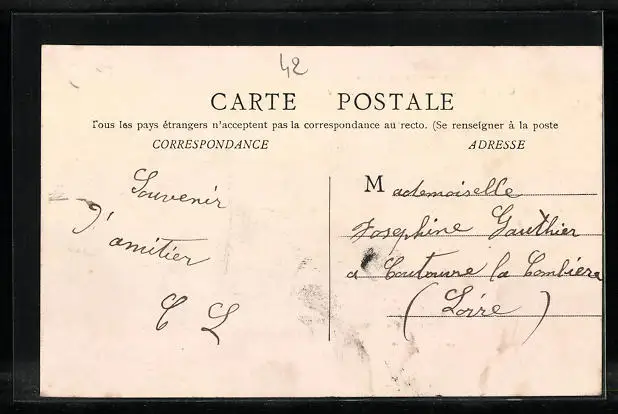 42
CARTE POSTALE
Tous les pays étrangers n'acceptent pas la correspondance au recto. (Se renseigner à la poste
CORRESPONDANCE
ADRESSE
Souvenir
d'amitier
C L
Mademoiselle
Josephine Gauthier
a Coutouvre la Combiere
(Loire)